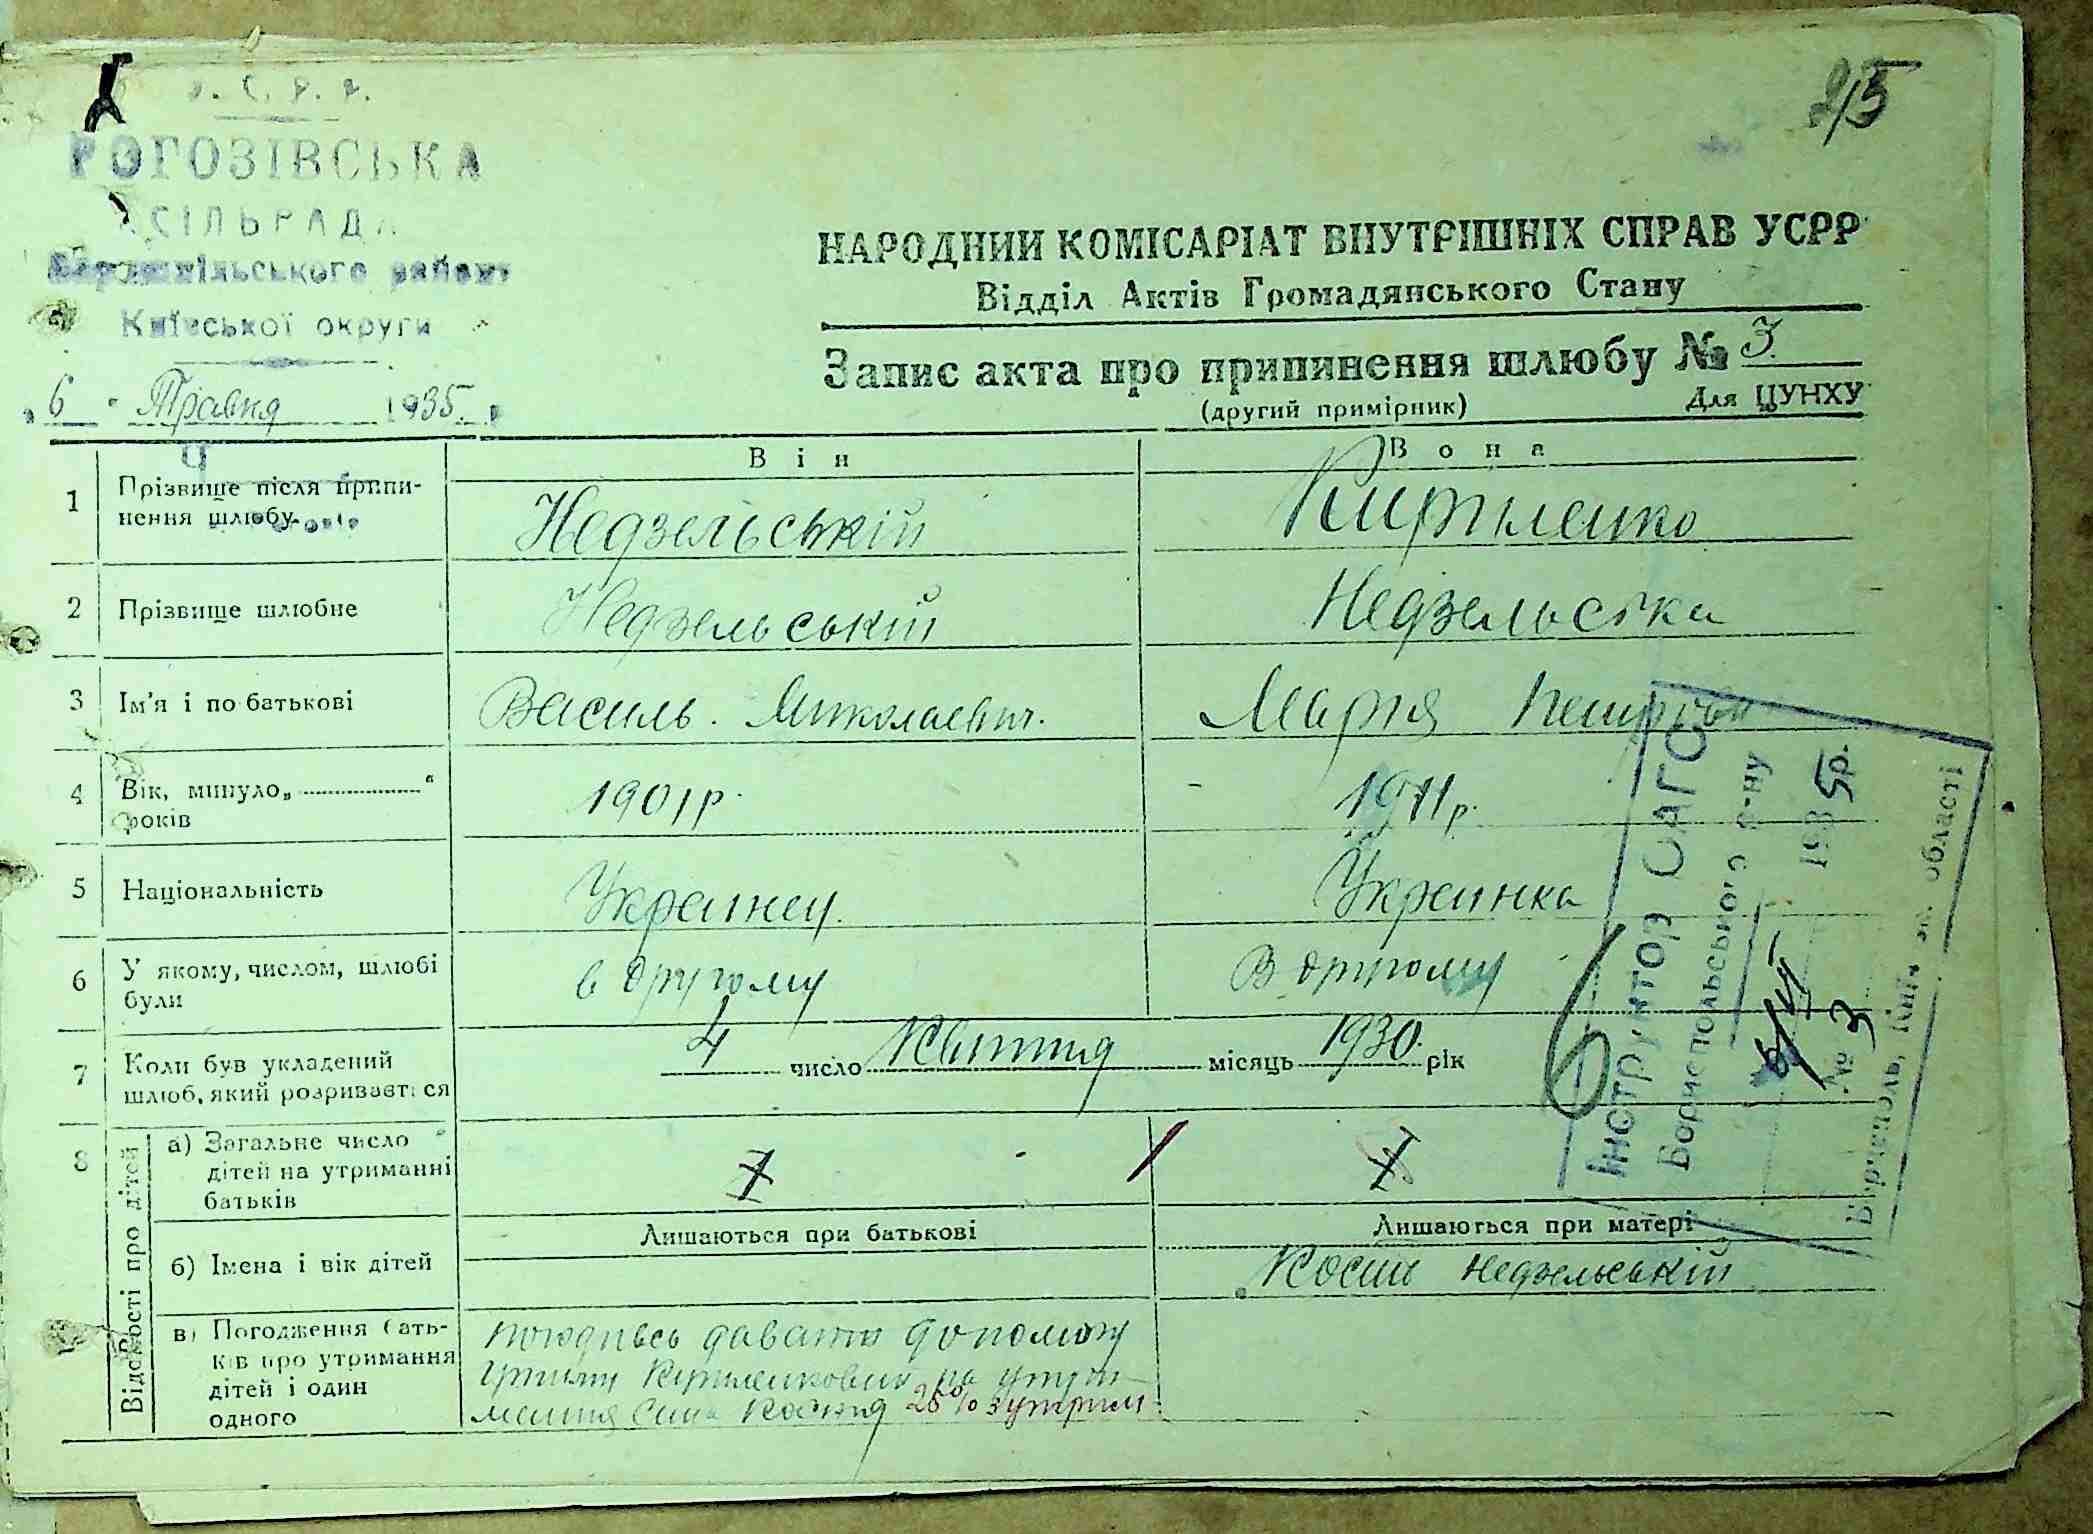 У. С. Р. Р.
РОГОЗІВСЬКА
СІЛЬРАДА
Бориспільського району
Київської округи
„6" Травня 1935 р.
215
НАРОДНИЙ КОМІСАРІАТ ВНУТРІШНІХ СПРАВ УСРР
Відділ Актів Громадянського Стану
Запис акта про припинення шлюбу № 3
(другий примірник) Для ЦУНХУ
Він Вона
1 Прізвище після припи-
нення шлюбу Недзельській Кириленко
2 Прізвище шлюбне Недзельській Недзельська
3 Ім'я і по батькові Василь Миколаевич. Марія
4 Вік, минуло „ " років 1901 р. 1911 р.
5 Національність Украинец Украинка
6 У якому, числом, шлюбі
були в другому В другому
7 Коли був укладений
шлюб, який розривається 4 число Квітня місяць 1930 рік
8 Відомості про дітей
а) Загальне число
дітей на утриманні
батьків 1 1
Лишаються при батькові Лишаються при матері
б) Імена і вік дітей Недзельській
в) Погодження бать-
ків про утримання
дітей і один
одного
давати допомогу
25% з утрим
Інструктор ЗАГС
Бориспольського р-ну
1935р.
№ 3
Бориспіль, Київськ. області
6